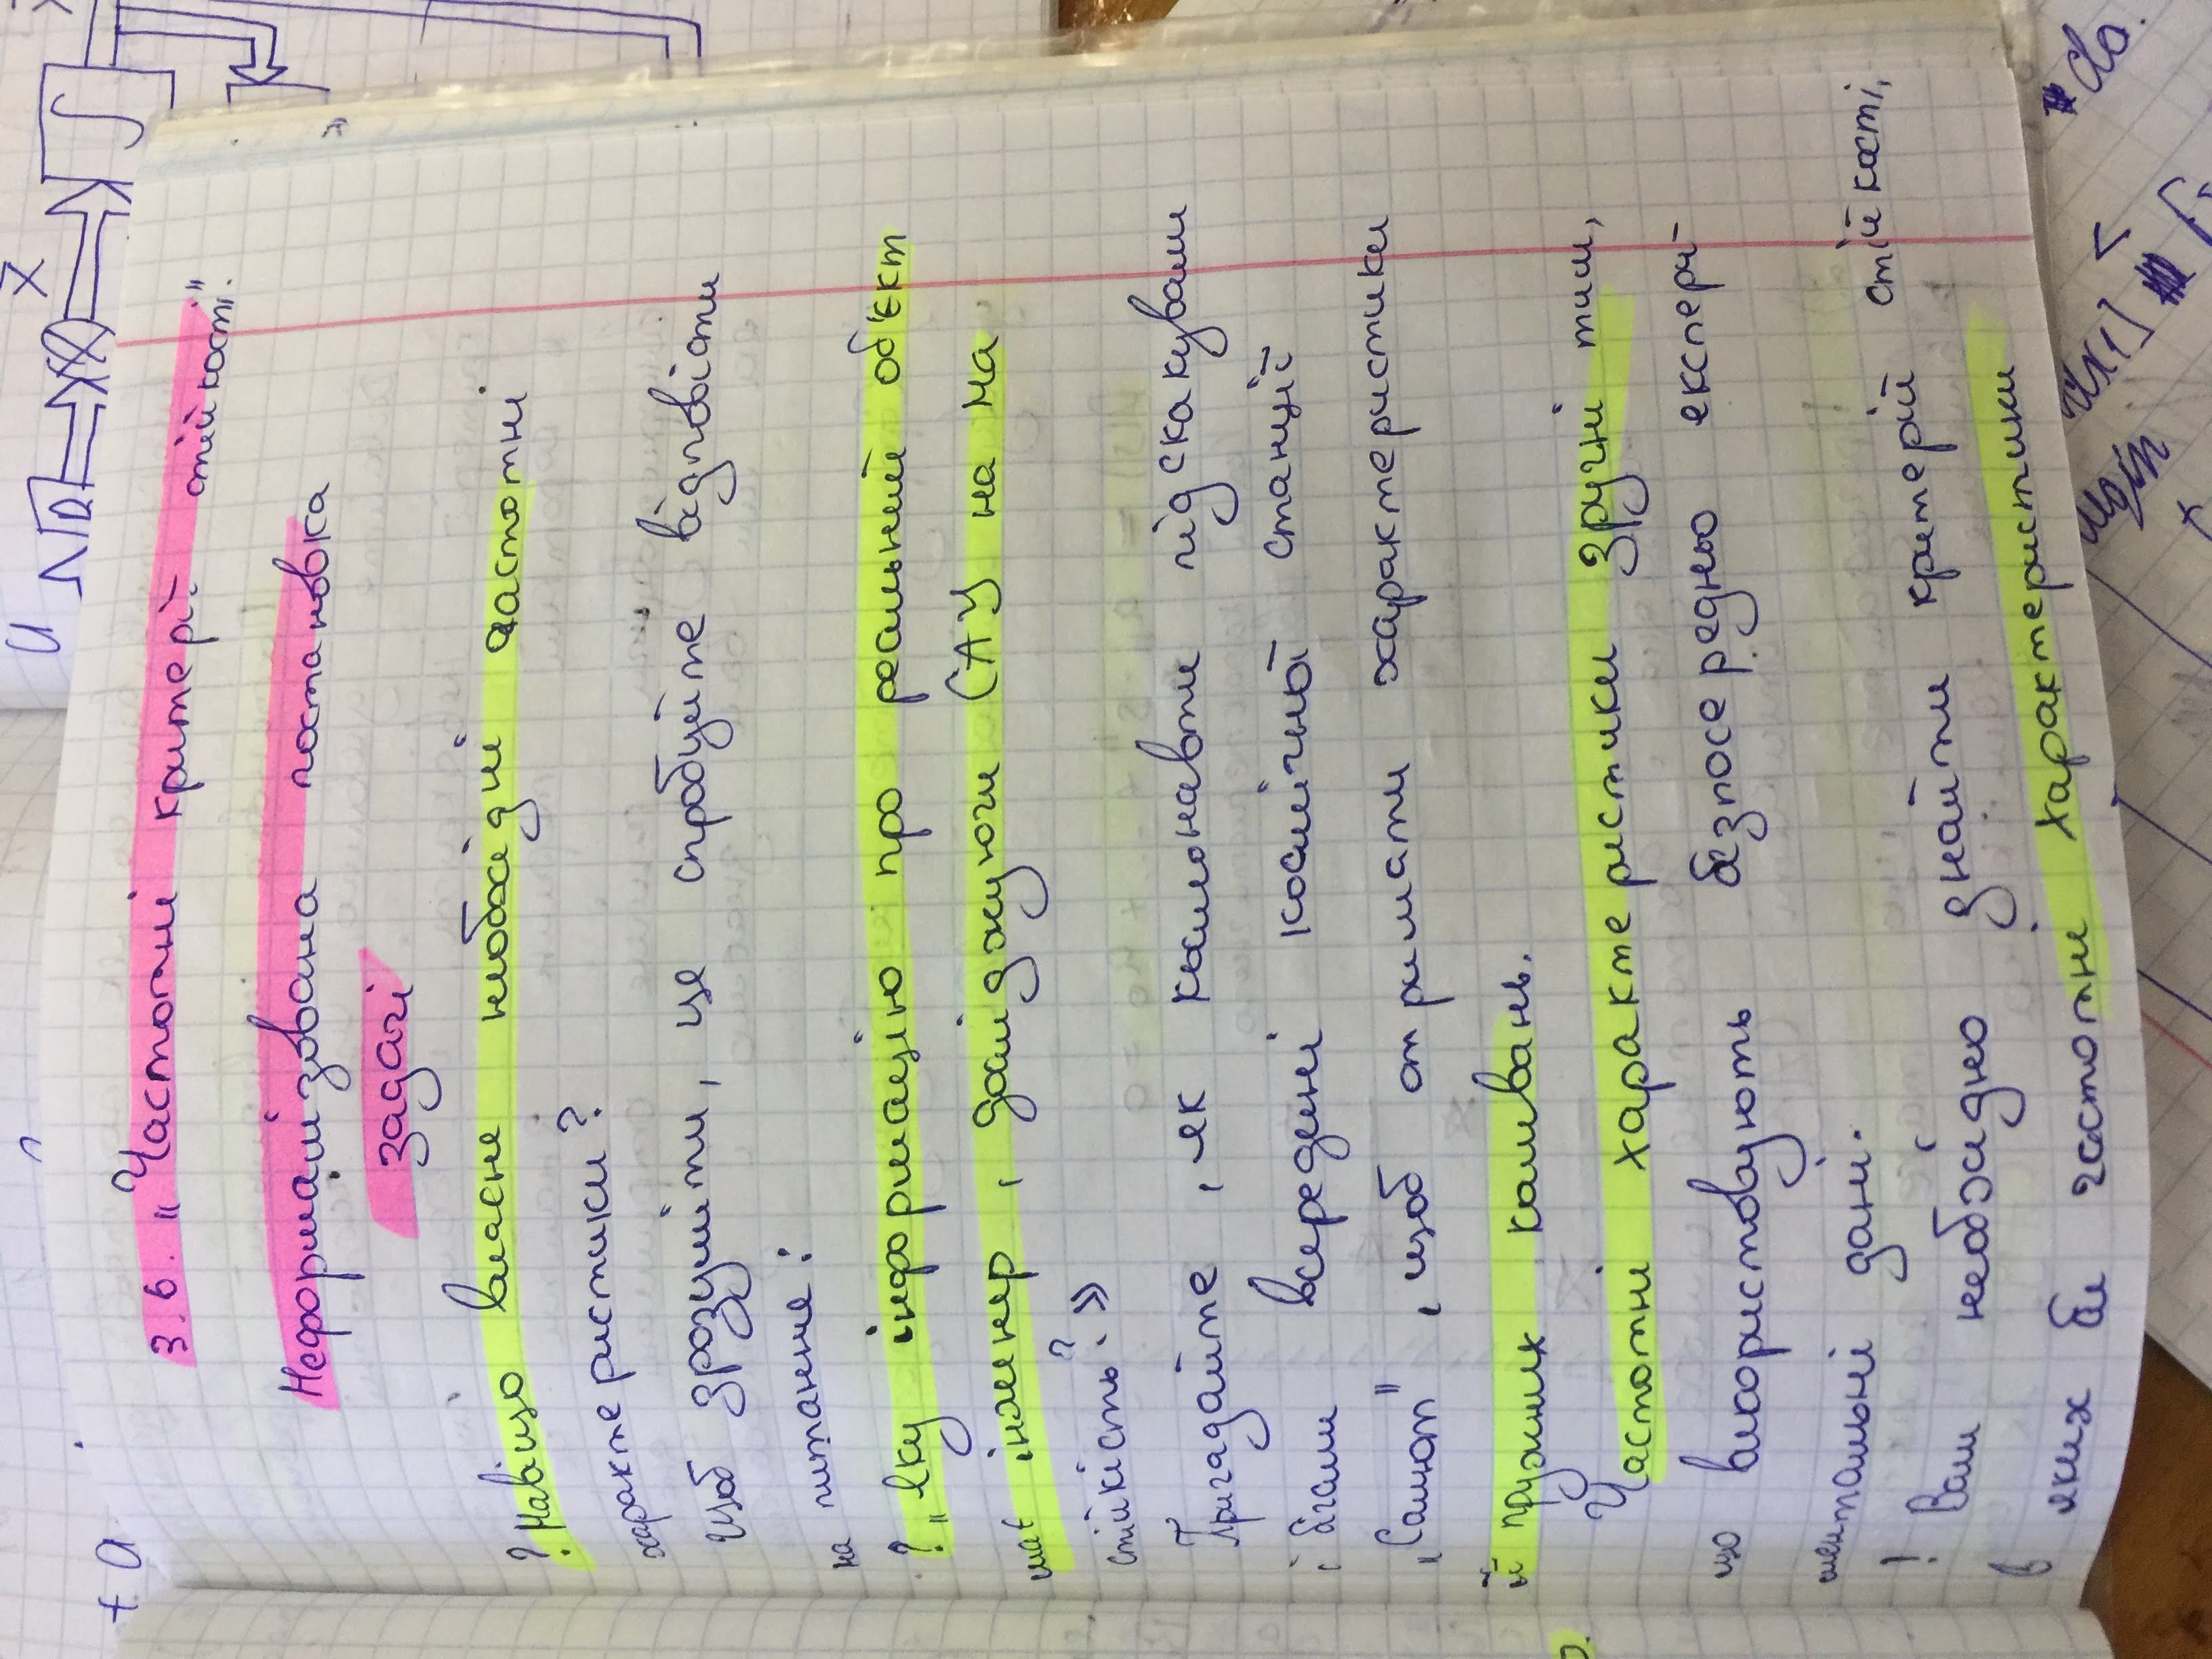 + a
U
X
3.6. „Частотні критерії стійкості".
Неформалізована постановка
задачі
? Навіщо власне необхідні частотні
характеристики?
Щоб зрозуміти, це спробуйте відповісти
на питання:
? „яку інформацію про реальний об'єкт
має інженер, досліджуючи САУ на на
стійкість? »
Пригадайте, як космонавти підскакували
і бігали всередині космічної станції
„Салют", щоб отримати характеристики
її пружних коливань.
Частотні характеристики зручні тим,
що використовують безпосередньо експери-
ментальні дані.
! Вам необхідно знайти критерій стійкості,
в яких би частотні характеристики